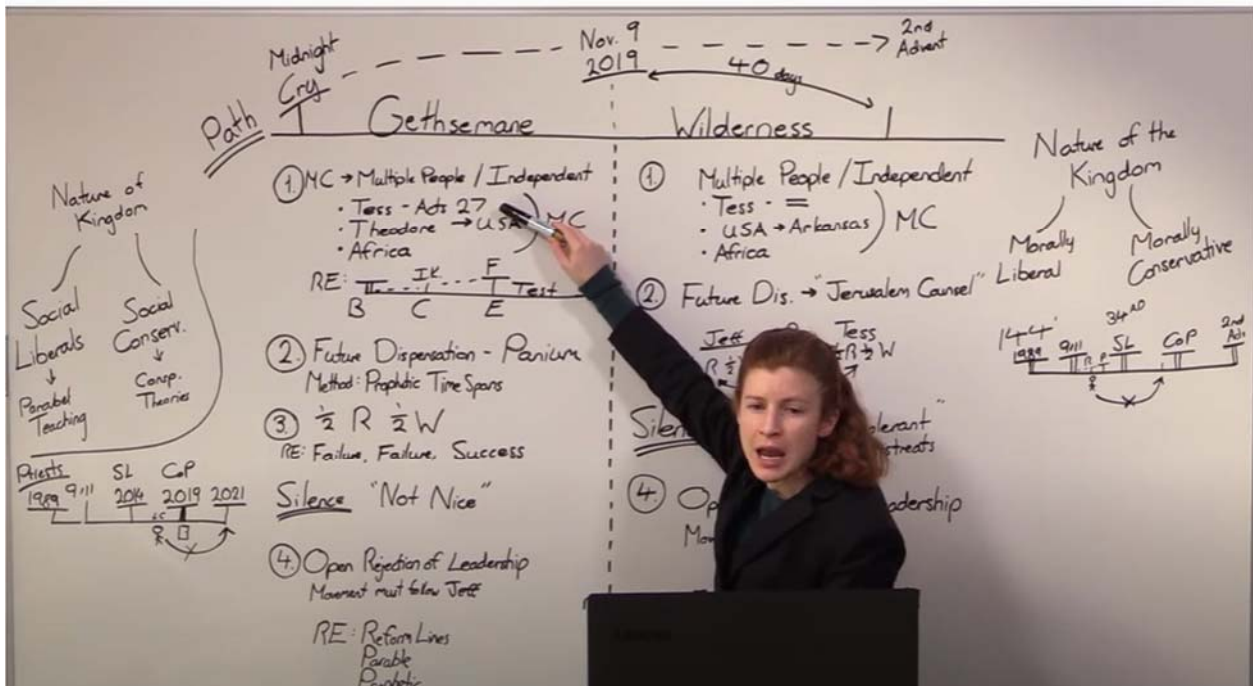 Midnight
Cry
Nov. 9
2019
2nd
Advent
40 days
Path
Gethsemane
Wilderness
Nature of
Kingdom
Social
Liberals
Parabel
Teaching
Social
Conserv.
Consp.
Theories
Priests
1989 9/11 SL 2014 CoP 2019 2021
① MC → Multiple People / Independent
· Tess - Acts 27
· Theodore → USA
· Africa
MC
RE: I.K. F Test
B C E
② Future Dispensation - Panium
Method: Prophetic Time Spans
③ ½ R ½ W
RE: Failure, Failure, Success
Silence "Not Nice"
④ Open Rejection of Leadership
Movement must follow Jeff
RE: Reform Lines
Parable
Prophetic
① Multiple People / Independent
· Tess - =
· USA → Arkansas
· Africa
MC
② Future Dis. → "Jerusalem Counsel"
Jeff Tess
R ½ ½ R ½ W
④
Nature of the
Kingdom
Morally
Liberal
Morally
Conservative
1989 9/11 34 AD SL CoP 2nd